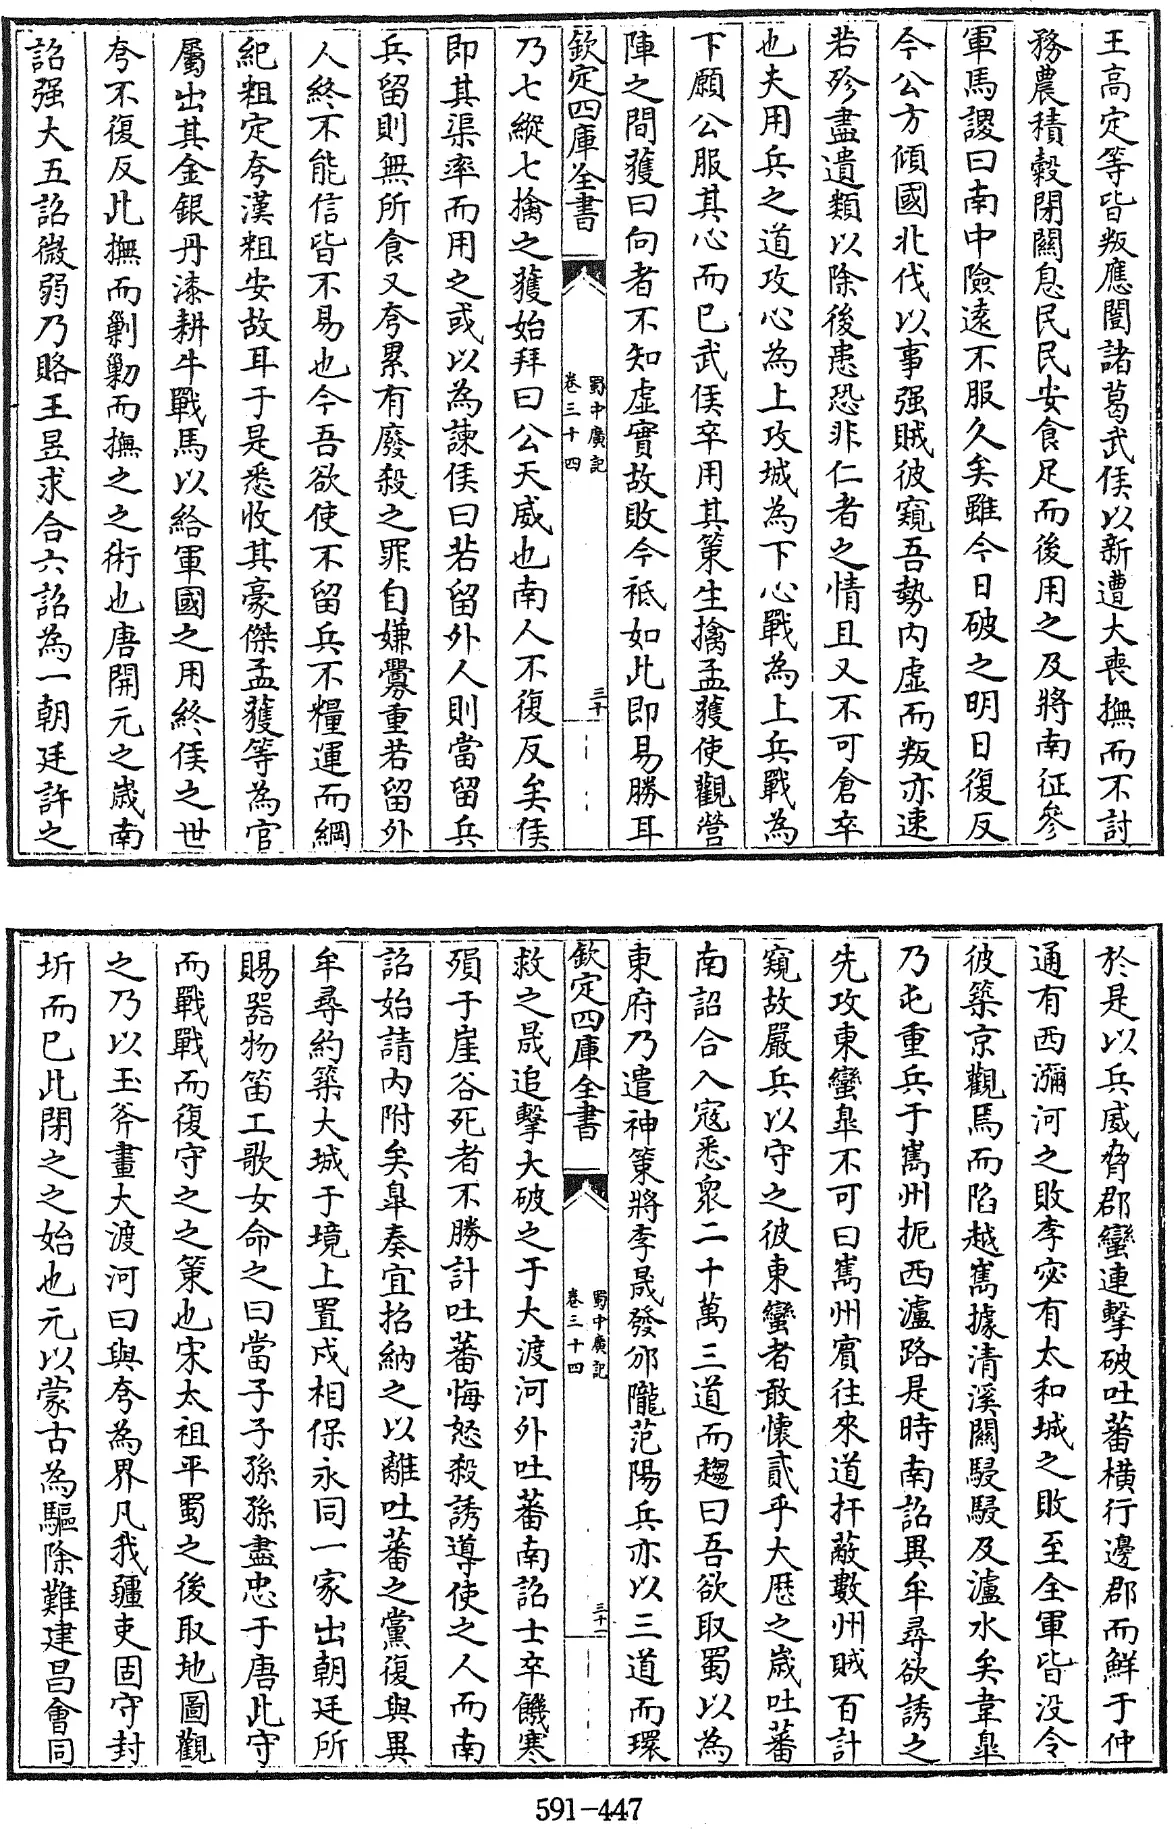 王高定等皆叛應闓諸葛武侯以新遭大喪撫而不討
務農積穀閉關息民民安食足而後用之及將南征參
軍馬謖曰南中險遠不服久矣雖今日破之明日復反
今公方傾國北伐以事强賊彼窺吾勢内虛而叛亦速
若殄盡遺類以除後患恐非仁者之情且又不可倉卒
也夫用兵之道攻心為上攻城為下心戰為上兵戰為
下願公服其心而已武侯卒用其策生擒孟獲使觀營
陣之間獲曰向者不知虛實故敗今秪如此即易勝耳
欽定四庫全書
蜀中廣記
卷三十四
三十
乃七縱七擒之獲始拜曰公天威也南人不復反矣侯
即其渠率而用之或以為諫侯曰若留外人則當留兵
兵留則無所食又夸累有廢殺之罪自嫌釁重若留外
人終不能信皆不易也今吾欲使不留兵不糧運而綱
紀粗定夸漢粗安故耳于是悉收其豪傑孟獲等為官
屬出其金銀丹漆耕牛戰馬以給軍國之用終侯之世
夸不復反此撫而剿剿而撫之之術也唐開元之歲南
詔强大五詔微弱乃賂王昱求合六詔為一朝廷許之
於是以兵威脅郡蠻連擊破吐蕃橫行邊郡而鮮于仲
通有西瀰河之敗李宓有太和城之敗至全軍皆没令
彼築京觀焉而陷越嶲據清溪關駸駸及瀘水矣韋臯
乃屯重兵于嶲州扼西瀘路是時南詔異牟尋欲誘之
先攻東蠻臯不可曰嶲州實往來道扞蔽數州賊百計
窺故嚴兵以守之彼東蠻者敢懷貳乎大厯之歲吐蕃
南詔合入寇悉衆二十萬三道而趨曰吾欲取蜀以為
東府乃遣神策將李晟發邠隴范陽兵亦以三道而環
欽定四庫全書
蜀中廣記
卷三十四
三十一
救之晟追擊大破之于大渡河外吐蕃南詔士卒饑寒
殞于崖谷死者不勝計吐蕃悔怒殺誘導使之人而南
詔始請内附矣臯奏宜招納之以離吐蕃之黨復與異
牟尋約築大城于境上置戍相保永同一家出朝廷所
賜器物笛工歌女命之曰當子子孫孫盡忠于唐此守
而戰戰而復守之之策也宋太祖平蜀之後取地圖觀
之乃以玉斧畫大渡河曰與夸為界凡我疆吏固守封
圻而已此閉之之始也元以蒙古為驅除難建昌會同
591-447